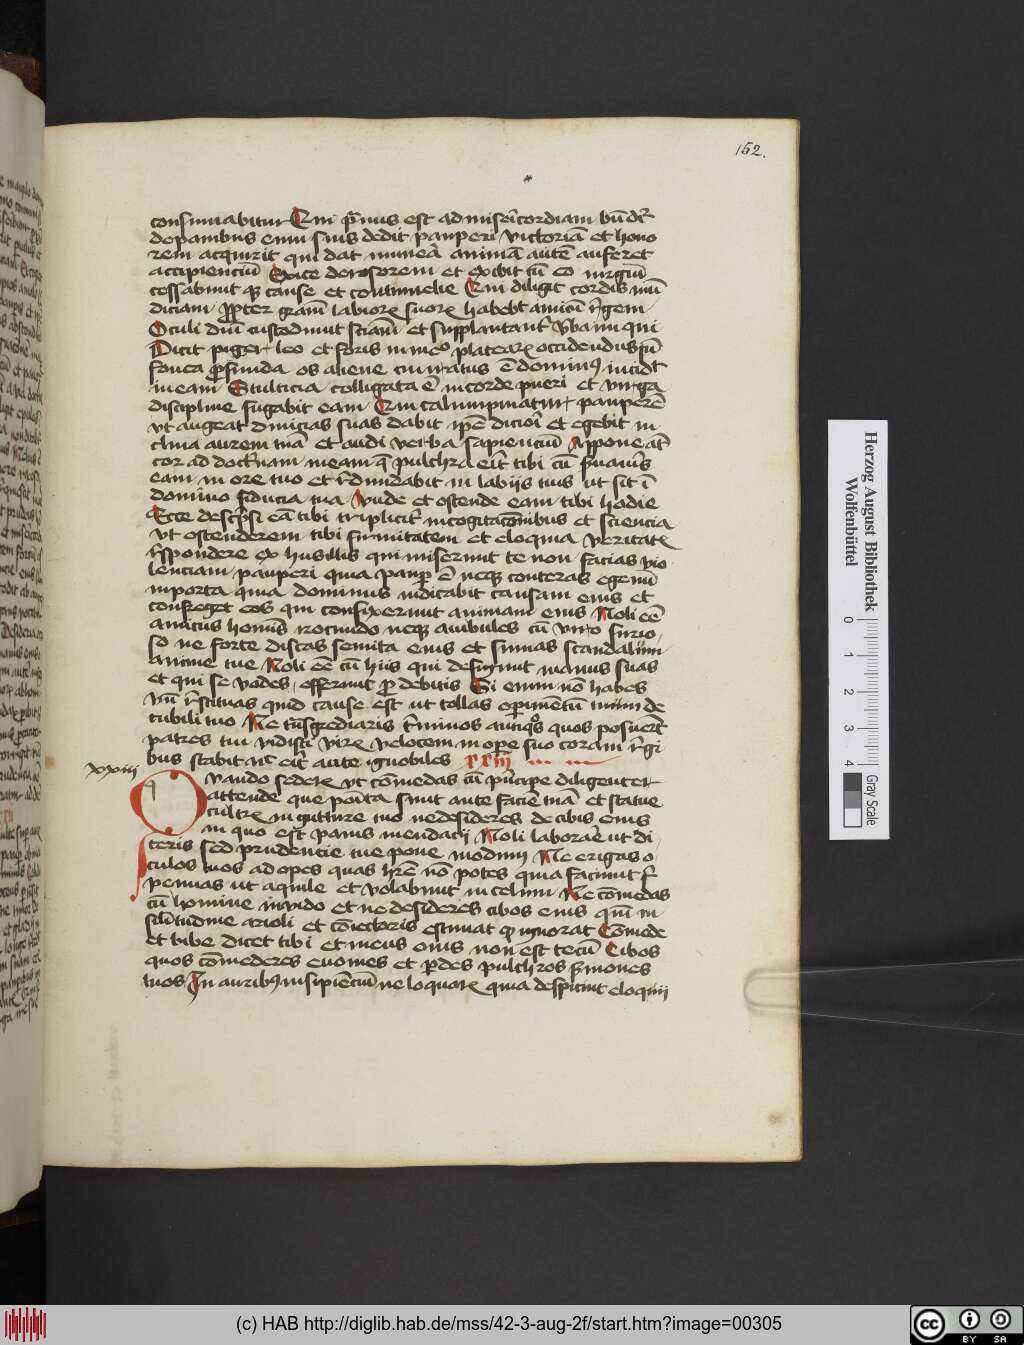 152.
consumabitur Qui p̄nus est ad misericordiam bn̄dr̄
de panibus enim suis dedit pauperi victoriā et hono
rem acquirit qui dat munera animā autē auferet
accipienciū Eiice derisorem et exibit cū eo iurgiū
cessabunt qꝫ cause et contumelie Qui diligit cordis mū
diciam ꝓpter grām labioꝝ suoꝝ habebt amicū r̄gem
Oculi dn̄i custodiunt sciam̄ et supplantant᷑ v̄ba iniqui
Dicit piger leo est foris in medio plateaꝝ occidendus sū
fovea ꝓfunda os aliene cui iratus ē dominus incidt
in eam Stulticia colligata ē in corde pueri et virga
discipline fugabit eam Qui calumpniatur pauperē
vt augeat divicias suas dabit ip̄e dicioī et egebit in
clina aurem tuā et audi verba sapienciū Appone at̄
cor ad doctrinam meam q̄ pulchra erit tibi cū s̄uav̄is
eam in ore tuo et r̄dundabit in labiis tuis ut sit ī
domino fiducia tua Unde et ostende eam tibi hodie
Ecce descpͥsi eā tibi tripliciт᷑ in cogitacōnibus et sciencia
vt ostenderem tibi firmitatem et eloquia veritatꝭ
r̄spondere ex hiis illis qui miserunt te non facias vio
lenciam pauperi quia paup̄ ē neqꝫ conteras egenū
in porta quia dominus iudicabit causam eius et
configet eos qui confixerunt animam eius Noli eē
amicus homīs iracundo neqꝫ ambules cū viro furio
so ne forte discas semita eius et sumas scandalum
anime tue Noli eē cū hiis qui defigunt manus suas
et qui se vades offerunt ꝓ debitis Si enim nō habes
vn̄ r̄stituas quid cause est ut tollas operimētū tuum de
cubili tuo Ne tn̄sgrediaris t̄minos antiqͦs quos posuer̄t
patres tui vidisti virꝝ velocem in ope suo coram r̄gi
bus stabit nc̄ er̄t ante ignobiles xxiii
xxiii
Quando sederis vt cōmedas cū pn̄cipe diligenter
attende que posita sunt ante faciē tuā et statue
cultrꝝ in gutture tuo ne desideres de cibis eius
in quo est panis mendacij Noli laborare ut di
teris sed prudentie tue pone modum Ne erigas o
culos tuos ad opes quas hr̄e nō potes quia faciunt s̄
pennas ut aquile et volabunt in celum Ne cōmedas
cū homine invido et ne desideres cibos eius qm̄ in
sil̄itudine arioli et cōiectoris estimat qꝫ ignorat Cōmede
et bibe dicet tibi et mens eius non est tecū Cibos
quos cōmederes evomes et p̄des pulchros s̄mones
tuos In auribus insipiēciū ne loquaꝝ quia despiciunt eloquij
Herzog August Bibliothek
Wolfenbüttel
0 1 2 3 4
Gray Scale
(c) HAB http://diglib.hab.de/mss/42-3-aug-2f/start.htm?image=00305
cc BY SA